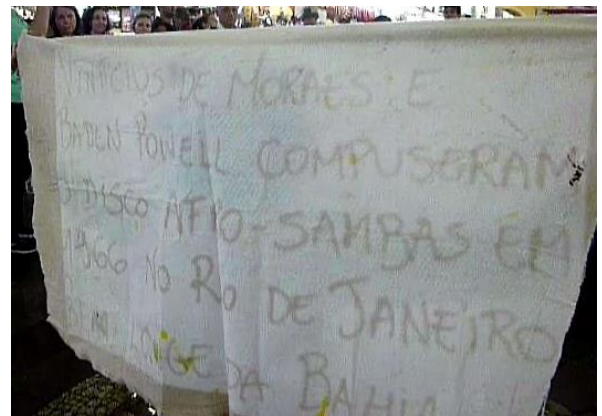 VINICIUS DE MORAES E
BADEN POWELL COMPUSERAM
O DISCO AFRO-SAMBAS EM
1966 NO RIO DE JANEIRO
BEM LONGE DA BAHIA